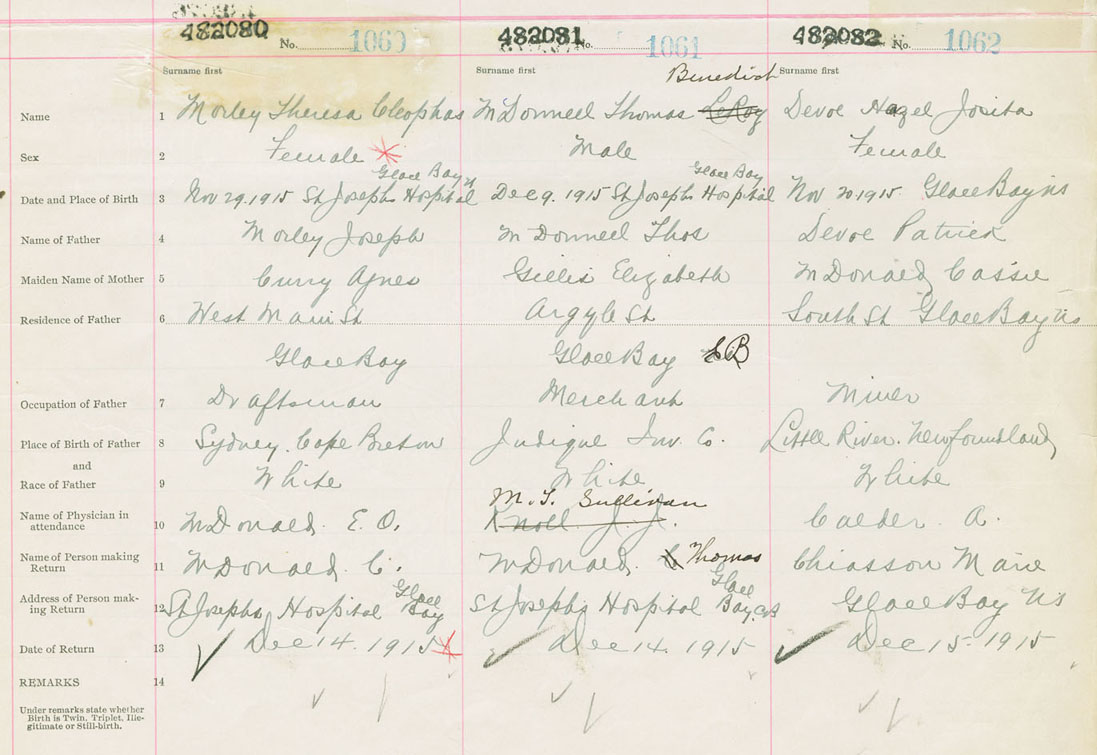 482080 No. 1060 482081 No. 1061 482082 No. 1062
Surname first Surname first Benedict Surname first
Name 1 Morley Theresa Cleophas McDonnell Thomas LeRoy Devoe Hazel Josita
Sex 2 Female Male Female
Glace Bay Glace Bay
Date and Place of Birth 3 Nov 29.1915 St Josephs Hospital Dec 9. 1915 St Josephs Hospital Nov 20 1915. Glace Bay NS
Name of Father 4 Morley Joseph McDonnell Thos Devoe Patrick
Maiden Name of Mother 5 Curry Agnes Gillis Elizabeth McDonald Cassie
Residence of Father 6 West Main St Argyle St South St Glace Bay NS
Glace Bay Glace Bay CB
Occupation of Father 7 Draftsman Merchant Miner
Place of Birth of Father 8 Sydney. Cape Breton Judique Inv. Co. Little River. Newfoundland
and
Race of Father 9 White White White
M. T. Sullivan
Name of Physician in
attendance 10 McDonald E. O. Knoll J. J. Calder. A.
Name of Person making
Return 11 McDonald. C. McDonald. C Thomas Chiasson Marie
Glace Glace
Address of Person mak-
ing Return 12 St Josephs Hospital Bay St Josephs Hospital Bay. CB Glace Bay NS
Date of Return 13 Dec 14. 1915 Dec 14. 1915 Dec 15. 1915
REMARKS 14
Under remarks state whether
Birth is Twin, Triplet, Ille-
gitimate or Still-birth.